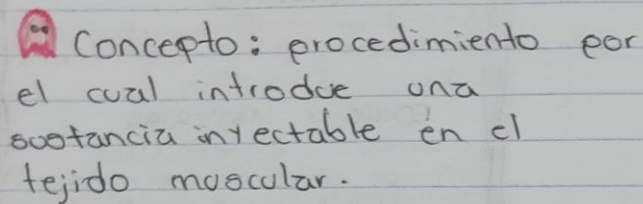 Concepto: procedimiento por
el cual introduce una
sustancia inyectable en el
tejido muscular.